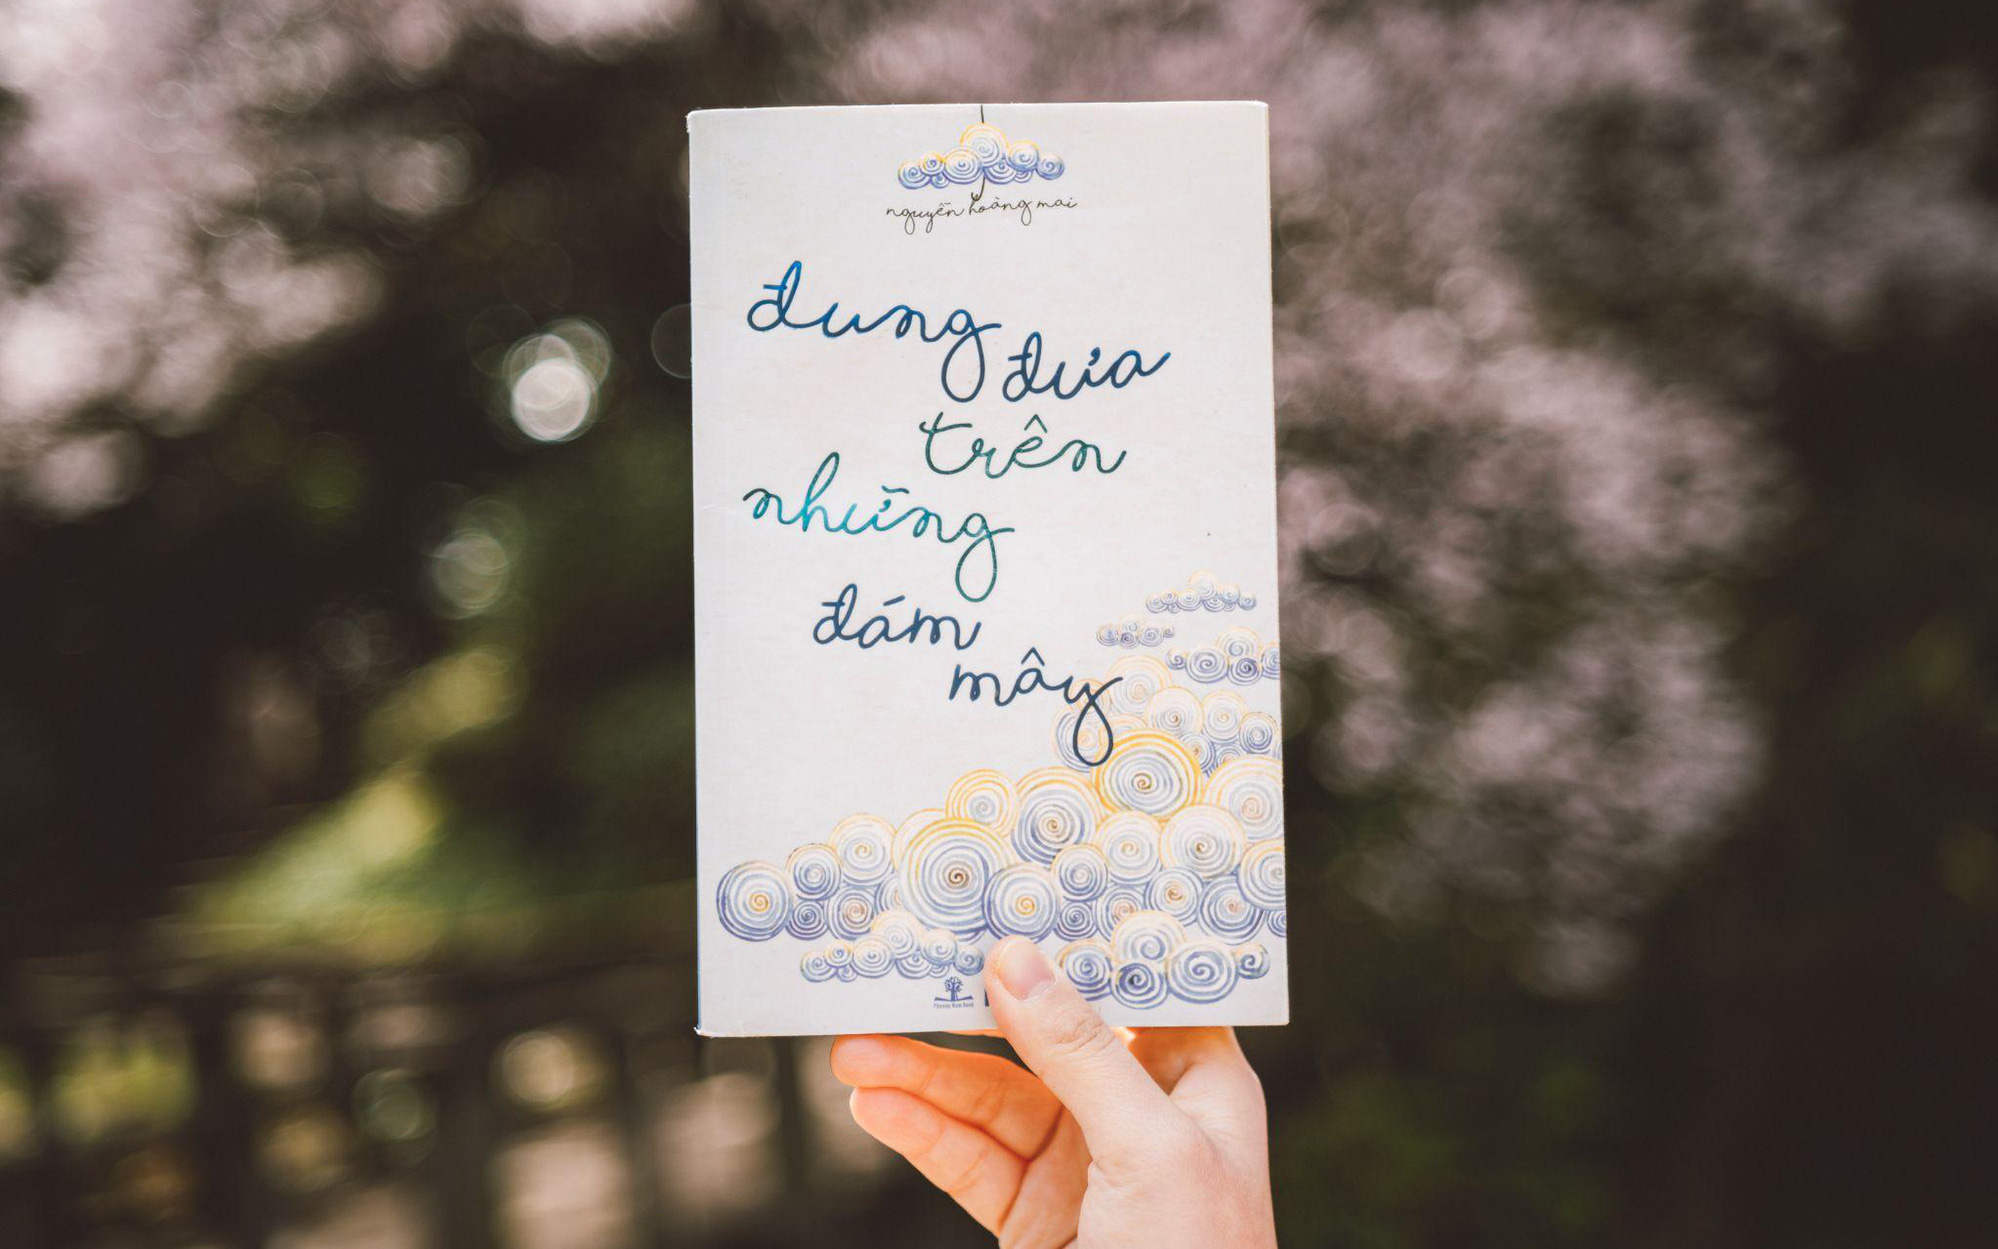 nguyễn hoàng mai
đung
đưa
trên
những
đám
mây
Phuong Nam Book